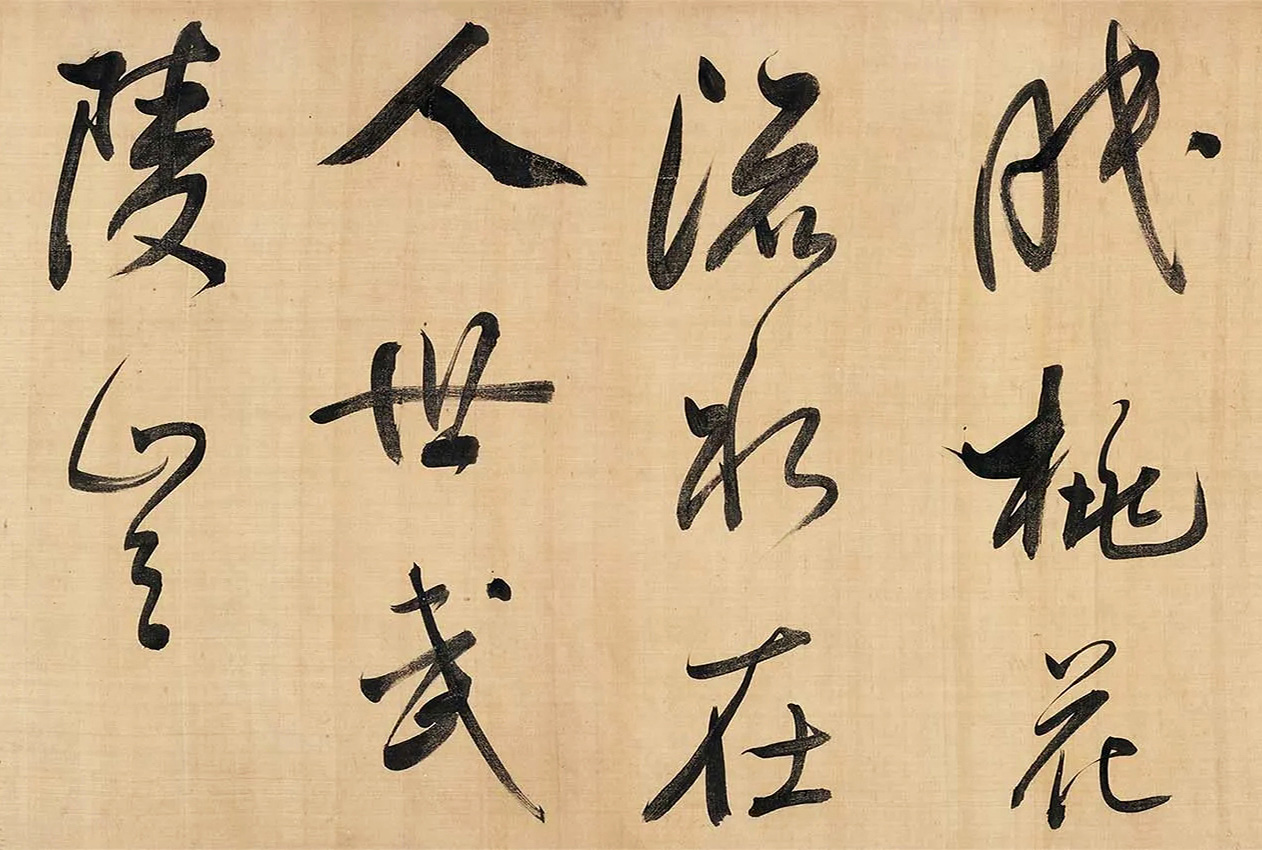 眠桃花
流水在
人世武
陵豈